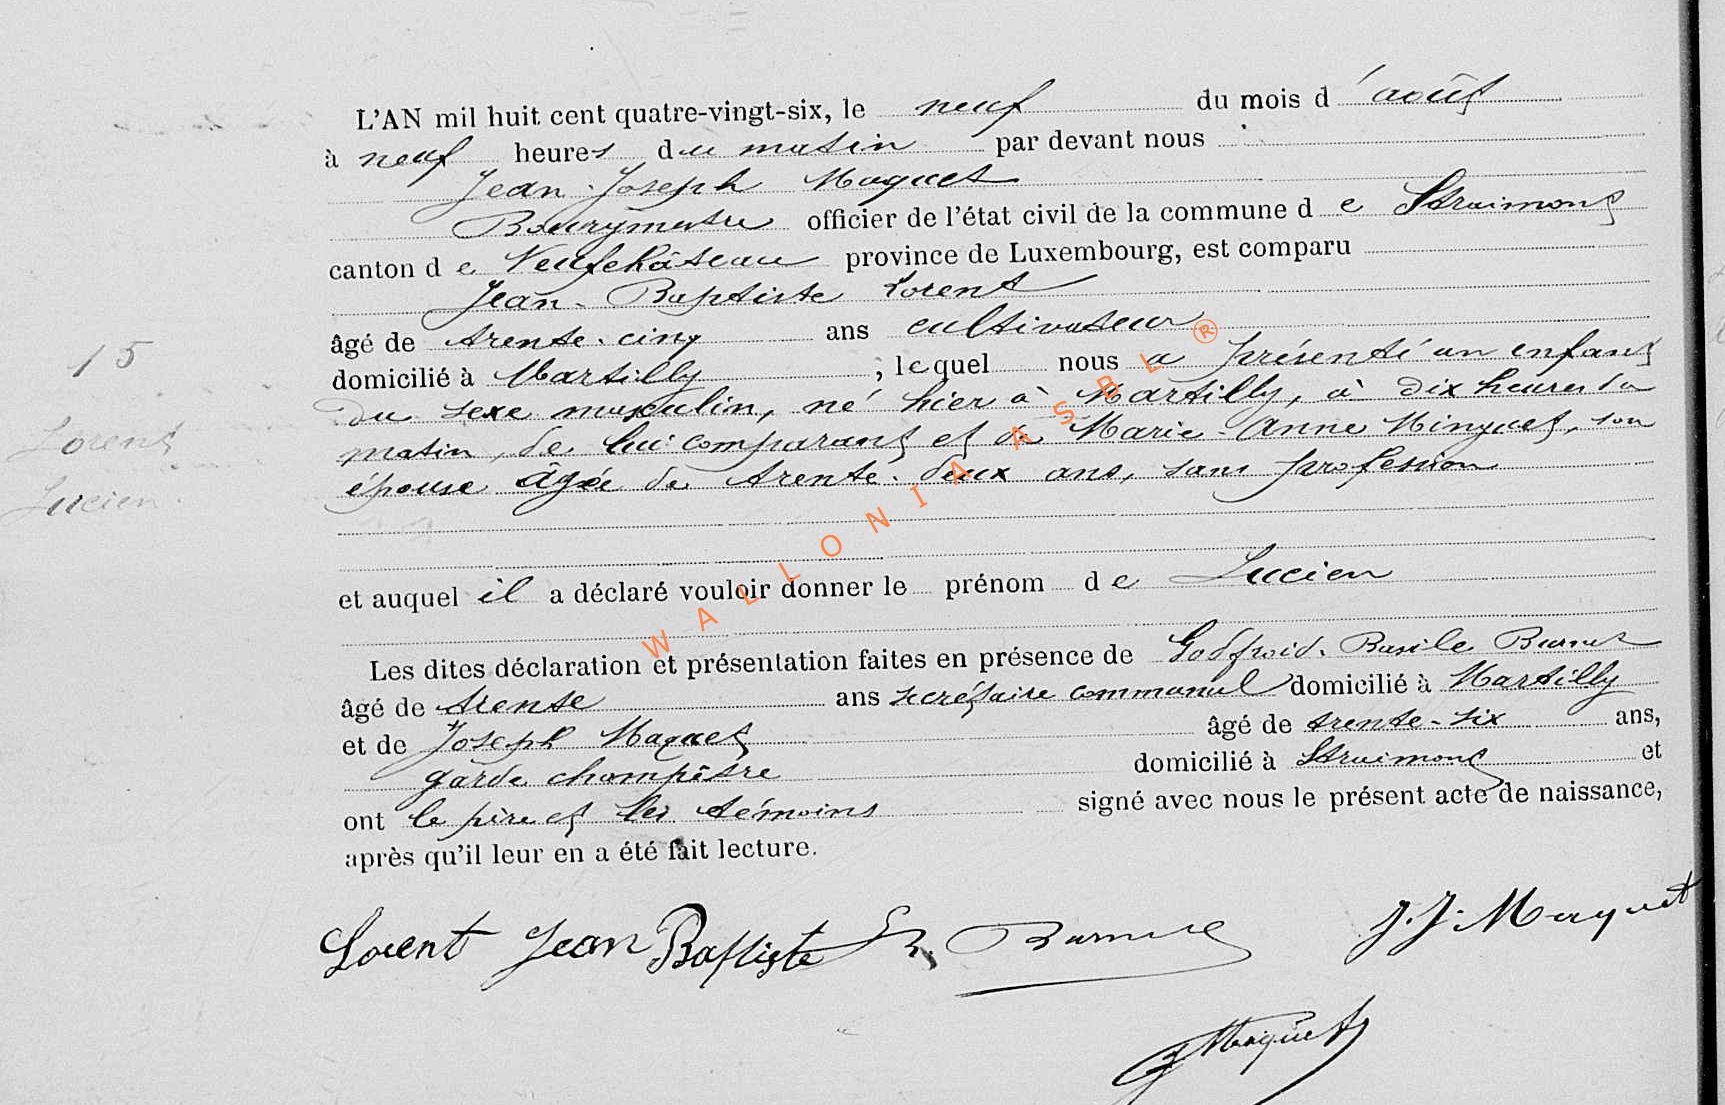 L'AN mil huit cent quatre-vingt-six, le neuf du mois d'août
à neuf heures du matin par devant nous
Jean-Joseph Maquet
Bourgmestre officier de l'état civil de la commune de Straimont
canton de Neufchâteau province de Luxembourg, est comparu
Jean-Baptiste Lorent
âgé de trente-cinq ans cultivateur
15
domicilié à Martilly ; lequel nous a présenté un enfant
du sexe masculin, né hier à Martilly, à dix heures du
Lorent
matin, de lui comparant et de Marie-Anne Minguet, son
Lucien
épouse âgée de trente-deux ans, sans profession
et auquel il a déclaré vouloir donner le prénom de Lucien
Les dites déclaration et présentation faites en présence de Godfroid-Basile
âgé de trente ans secrétaire communal domicilié à Martilly
et de Joseph Maquet âgé de trente-six ans,
garde champêtre domicilié à Straimont et
ont le père et les témoins signé avec nous le présent acte de naissance,
après qu'il leur en a été fait lecture.
Lorent Jean Baptiste J. J. Maquet
Maquet
WALLONIA ASBL ®